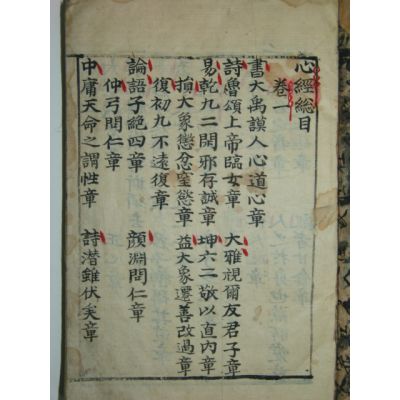 心經總目
卷一
書大禹謨人心道心章
詩魯頌上帝臨女章　大雅視爾友君子章
易乾九二閑邪存誠章　坤六二敬以直內章
損大象懲忿窒慾章　益大象遷善改過章
復初九不遠復章
論語子絶四章　顏淵問仁章
仲弓問仁章
中庸天命之謂性章　詩潛雖伏矣章